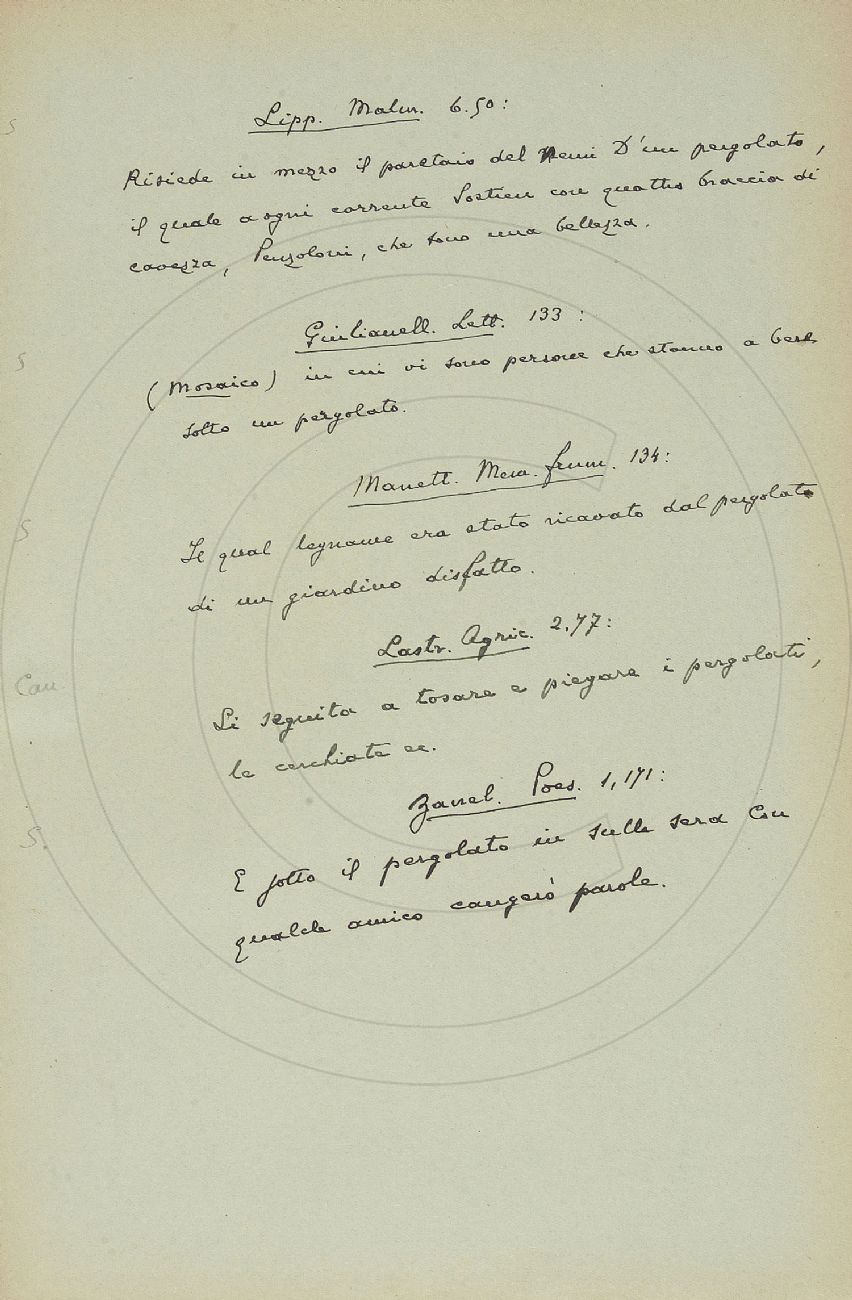 Lipp. Malm. 6.50:
Risiede in mezzo il paretaio del Nemi D'un pergolato,
il quale a ogni corrente Sostien con quattro braccia di
cavezza, Penzoloni, che sono una bellezza.
Giulianell. Lett. 133:
(Mosaico) in cui vi sono persone che stanno a bere
sotto un pergolato.
Manett. Mem. frum. 134:
Il qual legname era stato ricavato dal pergolato
di un giardino disfatto.
Lastr. Agric. 2.77:
Si seguita a tosare e piegare i pergolati,
le cerchiate ec.
Zannel. Poes. 1,171:
E sotto il pergolato in sulla sera Con
qualche amico cangerò parole.
S
S
S
Can
S.